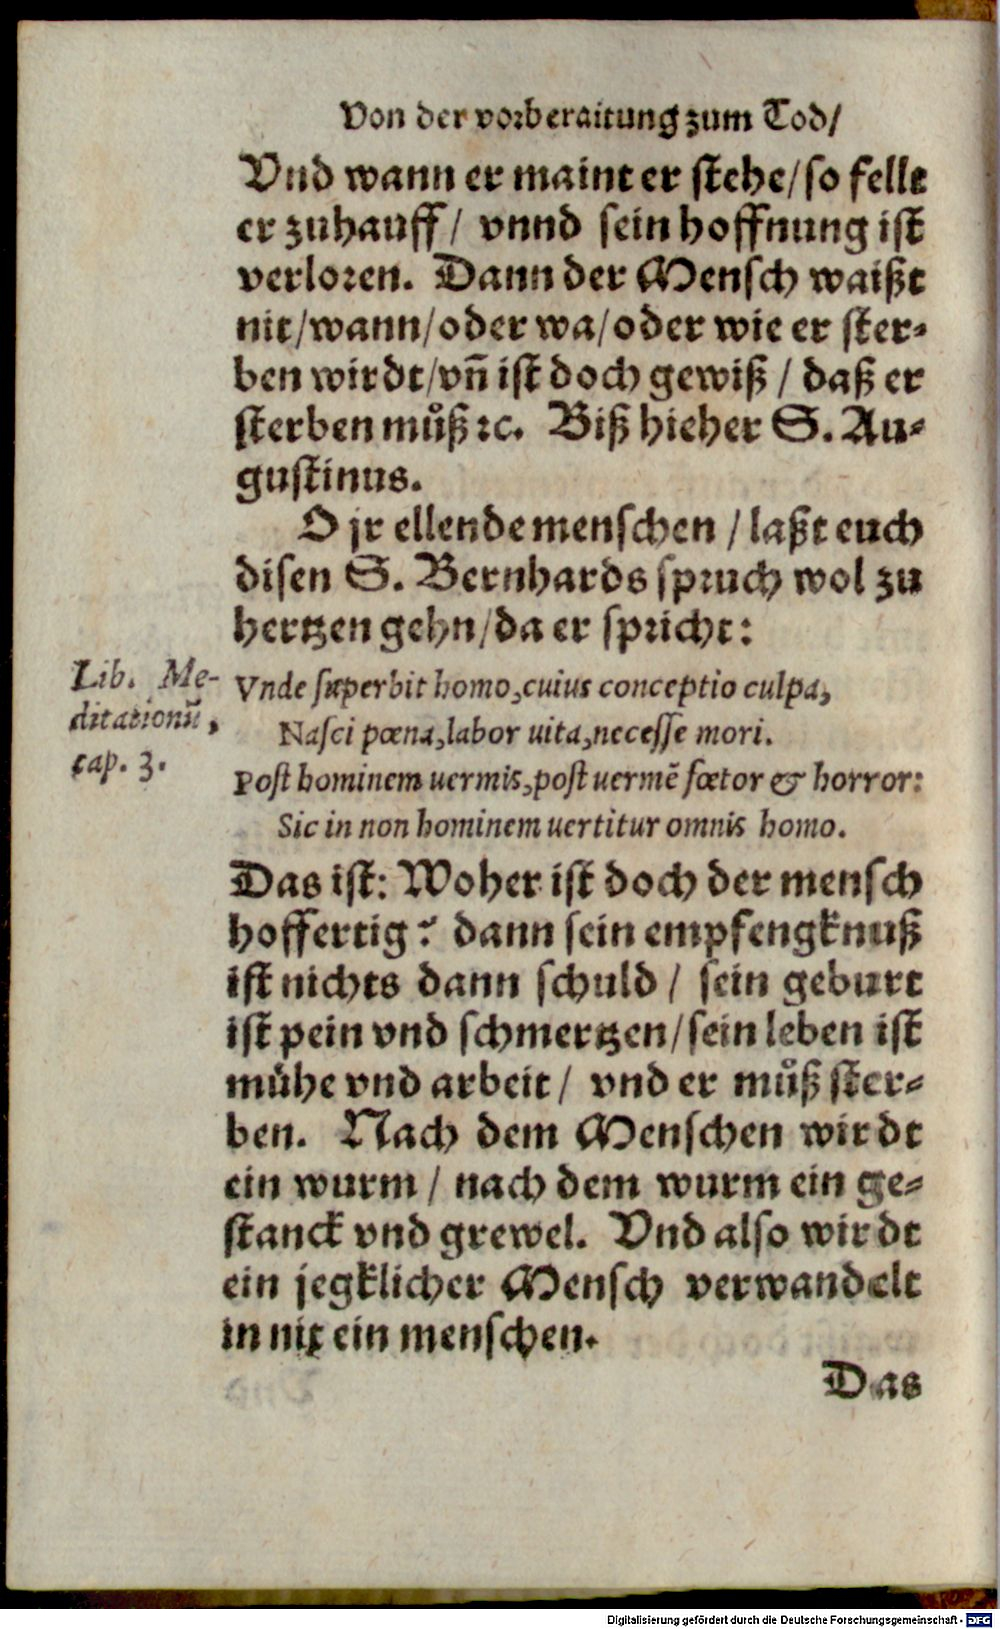 Von der vorberaitung zum Tod/
Vnd wann er maint er stehe/so fellt
er zuhauff/ vnnd sein hoffnung ist
verloren. Dann der Mensch waißt
nit/wann/oder wa/oder wie er ster-
ben wirdt/vñ ist doch gewiß/ daß er
sterben můß ꝛc. Biß hieher S. Au-
gustinus.
O jr ellende menschen/laßt euch
disen S. Bernhards spruch wol zu
hertzen gehn/da er spricht:
Lib. Me-
ditationũ,
cap. 3.
Vnde superbit homo, cuius conceptio culpa,
Nasci pœna, labor uita, necesse mori.
Post hominem uermis, post uermẽ fœtor & horror:
Sic in non hominem uertitur omnis homo.
Das ist: Woher ist doch der mensch
hoffertig? dann sein empfengknuß
ist nichts dann schuld/ sein geburt
ist pein vnd schmertzen/sein leben ist
mühe vnd arbeit/ vnd er můß ster-
ben. Nach dem Menschen wirdt
ein wurm/ nach dem wurm ein ge-
stanck vnd grewel. Vnd also wirdt
ein jegklicher Mensch verwandelt
in nix ein menschen.
Das
Digitalisierung gefördert durch die Deutsche Forschungsgemeinschaft - DFG